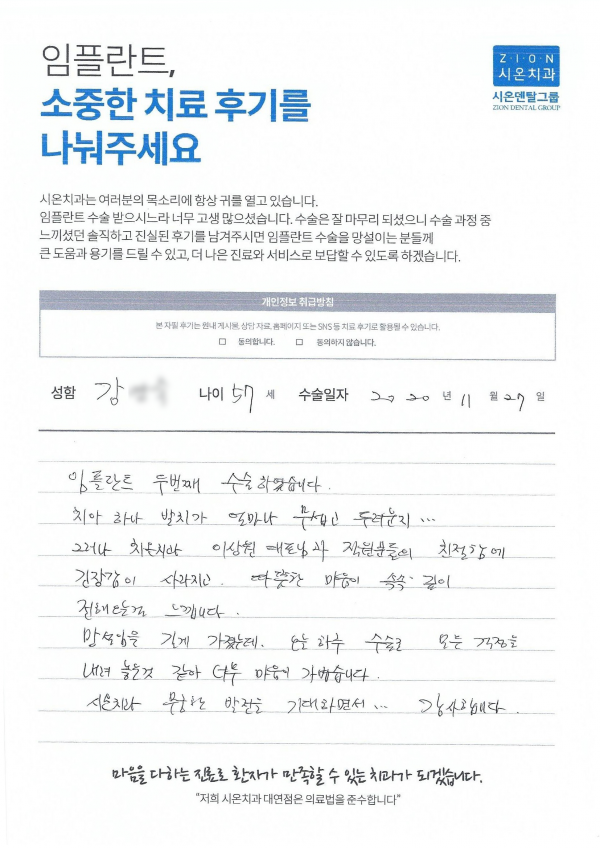 임플란트,
소중한 치료 후기를
나눠주세요
Z·I·O·N
시온치과
시온덴탈그룹
ZION DENTAL GROUP
시온치과는 여러분의 목소리에 항상 귀를 열고 있습니다.
임플란트 수술 받으시느라 너무 고생 많으셨습니다. 수술은 잘 마무리 되셨으니 수술 과정 중
느끼셨던 솔직하고 진실된 후기를 남겨주시면 임플란트 수술을 망설이는 분들께
큰 도움과 용기를 드릴 수 있고, 더 나은 진료와 서비스로 보답할 수 있도록 하겠습니다.
개인정보 취급방침
본 자필 후기는 원내 게시물, 상담 자료, 홈페이지 또는 SNS 등 치료 후기로 활용될 수 있습니다.
☐ 동의합니다. ☐ 동의하지 않습니다.
성함 강 나이 57 세 수술일자 2020 년 11 월 27 일
임플란트 두번째 수술 하였습니다.
치아 하나 발치가 얼마나 무섭고 두려운지...
그러나 시온치과 이상원 대표님과 직원분들의 친절함에
긴장감이 사라지고. 따뜻한 마음이 속속 깊이
전해드는걸 느낍니다.
망설임을 길게 가졌는데. 오늘 하루 수술로 모든 걱정을
내려 놓은것 같아 너무 마음이 가볍습니다.
시온치과 무궁한 발전을 기대하면서... 감사합니다.
마음을 다하는 진료로 환자가 만족할 수 있는 치과가 되겠습니다.
"저희 시온치과 대연점은 의료법을 준수합니다"